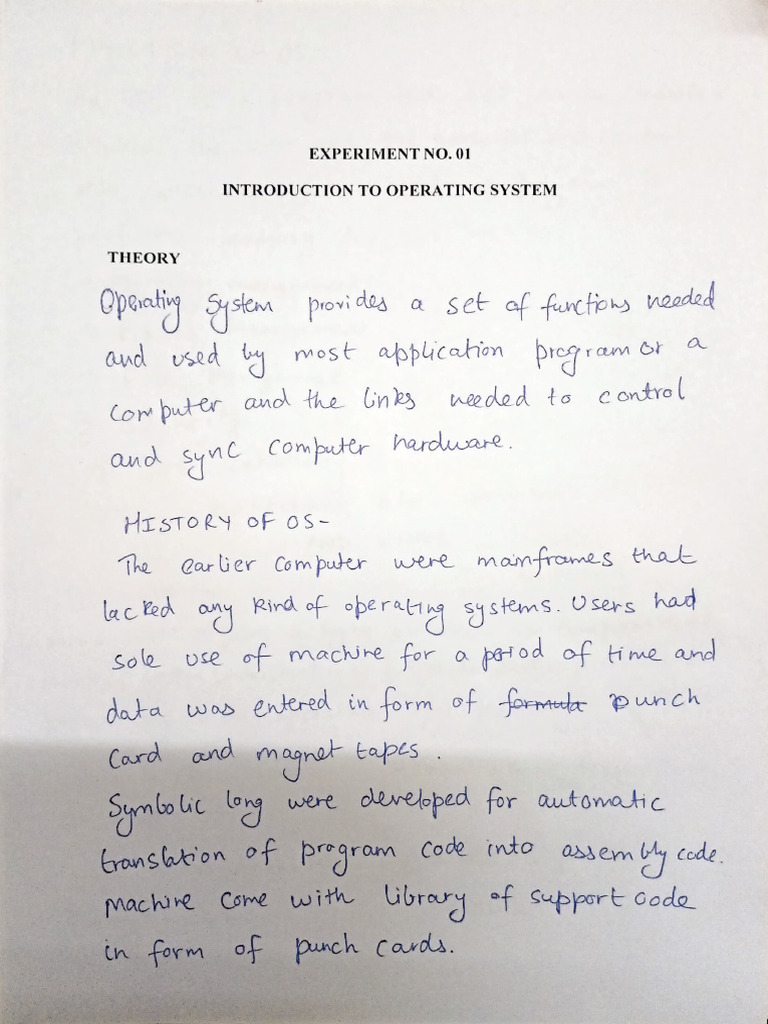 EXPERIMENT NO. 01
INTRODUCTION TO OPERATING SYSTEM
THEORY
Operating System provides a set of functions needed
and used by most application program or a
computer and the links needed to control
and sync computer hardware.
HISTORY OF OS-
The earlier computer were mainframes that
lacked any kind of operating systems. Users had
sole use of machine for a period of time and
data was entered in form of formula punch
card and magnet tapes.
Symbolic long were developed for automatic
translation of program code into assembly code.
Machine come with library of support code
in form of punch cards.